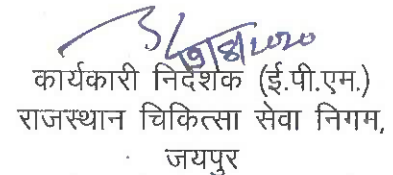 19/8/2020
कार्यकारी निदेशक (ई.पी.एम.)
राजस्थान चिकित्सा सेवा निगम,
जयपुर